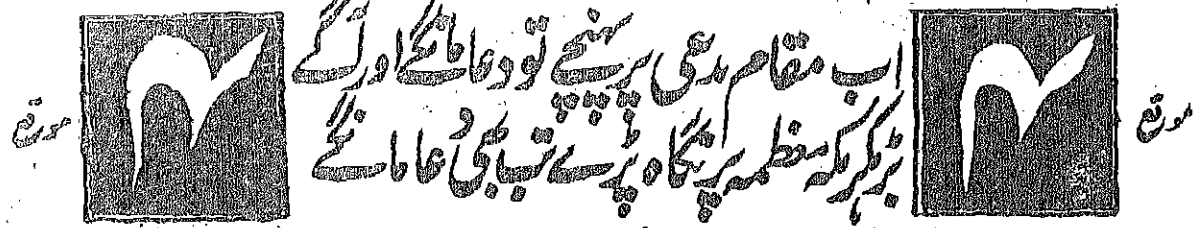 موقع ۲
اب مقام مدعی پر پہنچے تو دعا مانگے اور آگے
بڑھ کر مکہ معظمہ پر نگاہ پڑے تب بھی دعا مانگے
۲ موقع